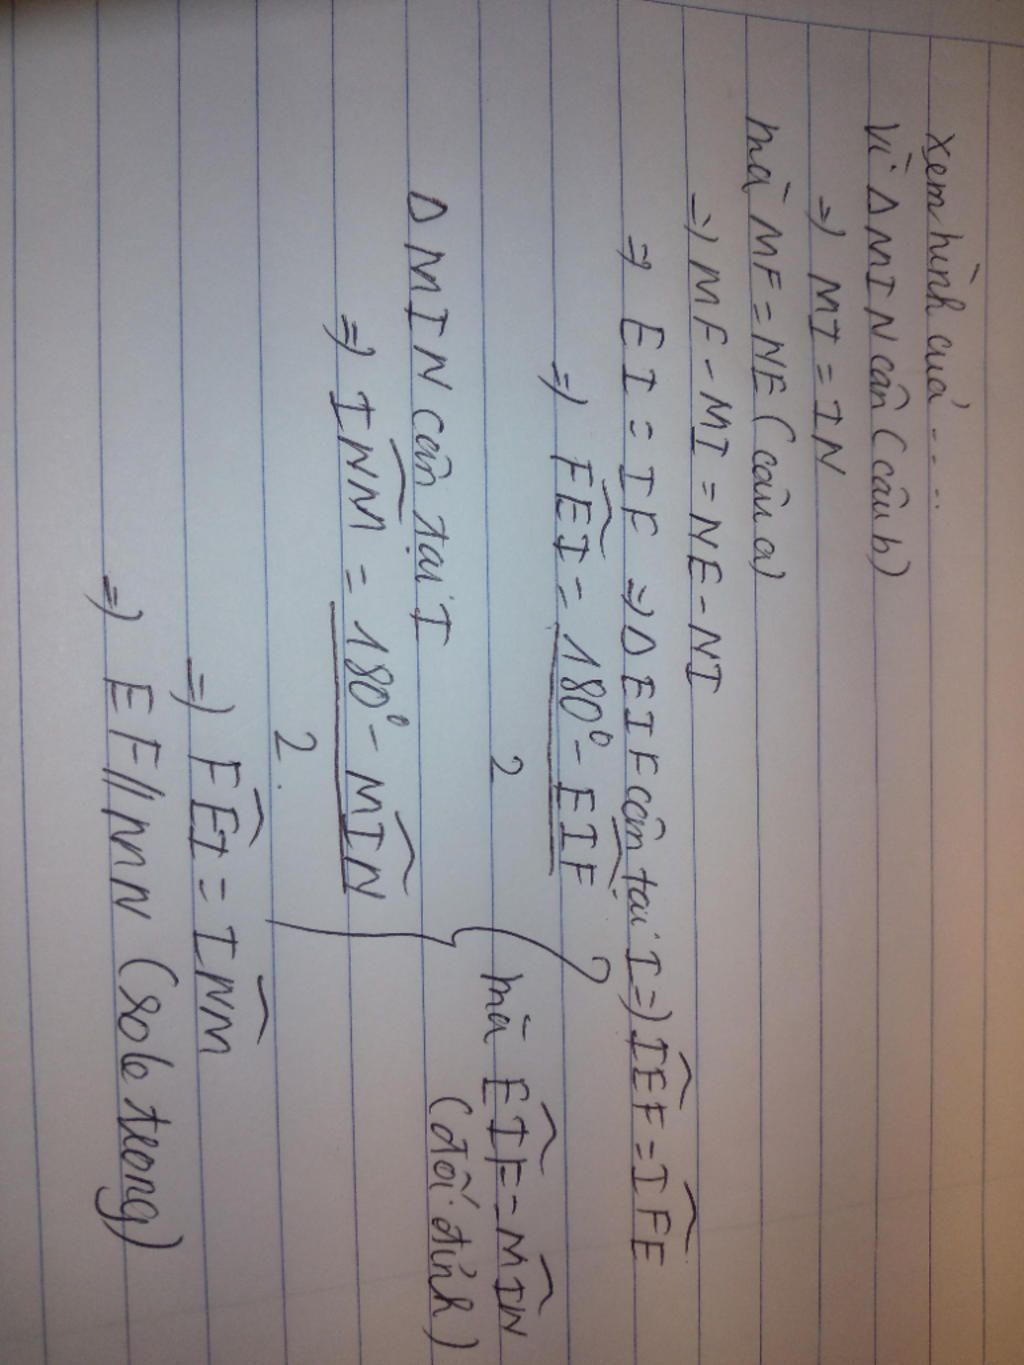 Xem hình của ....
Vì Δ MIN cân (câu b)
=> MI = IN
mà MF = NE (câu a)
=> MF - MI = NE - NI
=> EI = IF => Δ EIF cân tại I => \widehat{IEF} = \widehat{IFE}
=> \widehat{FEI} = \frac{180° - \widehat{EIF}}{2}
mà \widehat{EIF} = \widehat{MIN}
(đối đỉnh)
Δ MIN cân tại I
=> \widehat{INM} = \frac{180° - \widehat{MIN}}{2}
=> \widehat{FEI} = \widehat{INM}
=> EF // MN (sole trong)